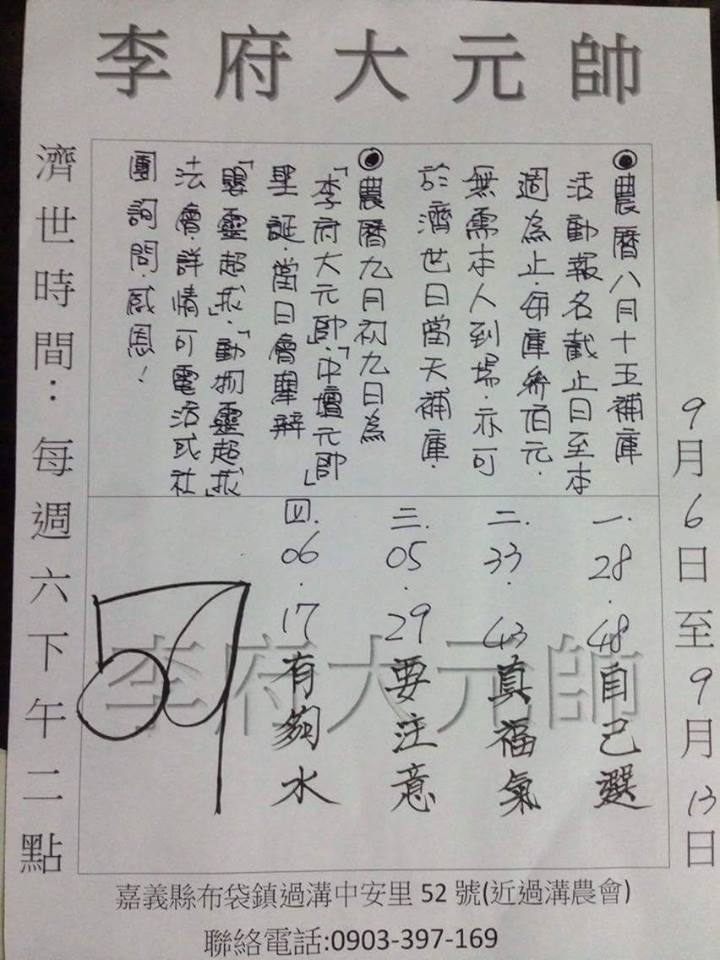 李府大元帥
9月6日至9月13日
◉農曆八月十五補庫
活動報名截止日至本
週為止.每庫參佰元.
無需本人到場.亦可
於濟世日當天補庫.
◉農曆九月初九日為
「李府大元帥」.「中壇元帥」
聖誕.當日會舉辦
「嬰靈超拔」.「動物靈超拔」
法會.詳情可電洽或社
團詢問.感恩!
一.28.48自己選
二.33.43真福氣
三.05.29要注意
四.06.17有夠水
李府大元帥
濟世時間:每週六下午二點
嘉義縣布袋鎮過溝中安里52號(近過溝農會)
聯絡電話:0903-397-169